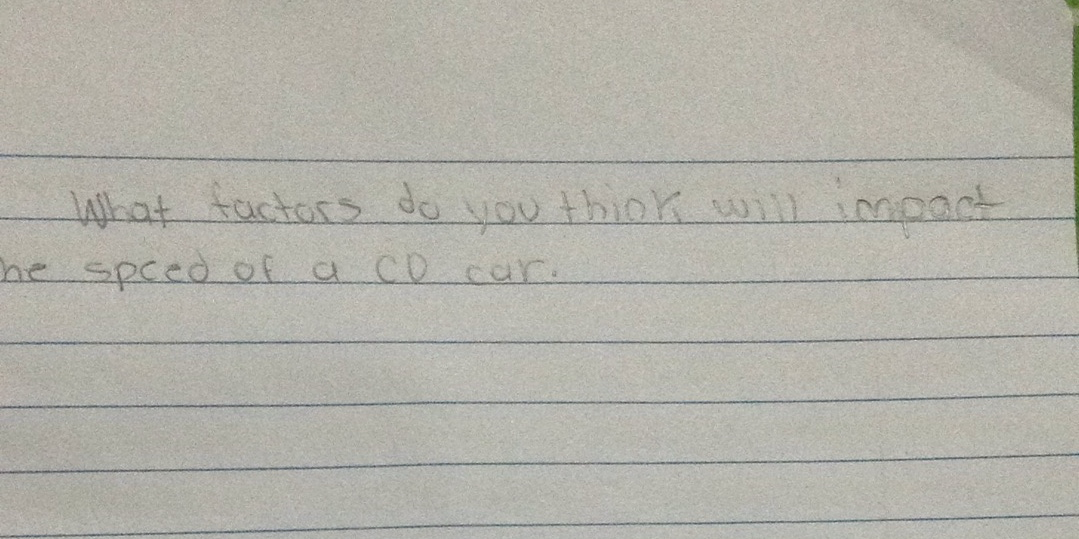 What factors do you think will impact
he speed of a CD car.